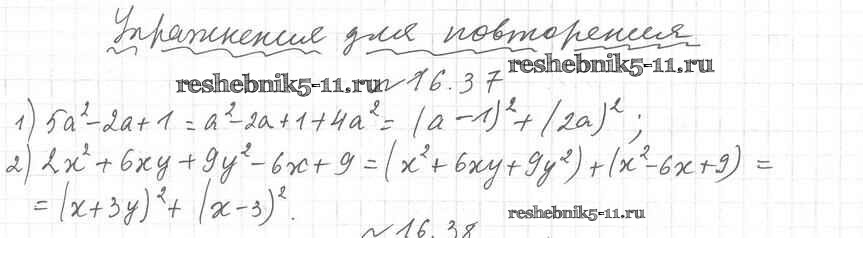 Упражнения для повторения
reshebnik5-11.ru
reshebnik5-11.ru № 16.37
1) 5a²-2a+1 = a²-2a+1+4a² = (a-1)²+(2a)²;
2) 2x²+6xy+9y²-6x+9 = (x²+6xy+9y²)+(x²-6x+9) =
= (x+3y)²+(x-3)².
reshebnik5-11.ru
№ 16.38